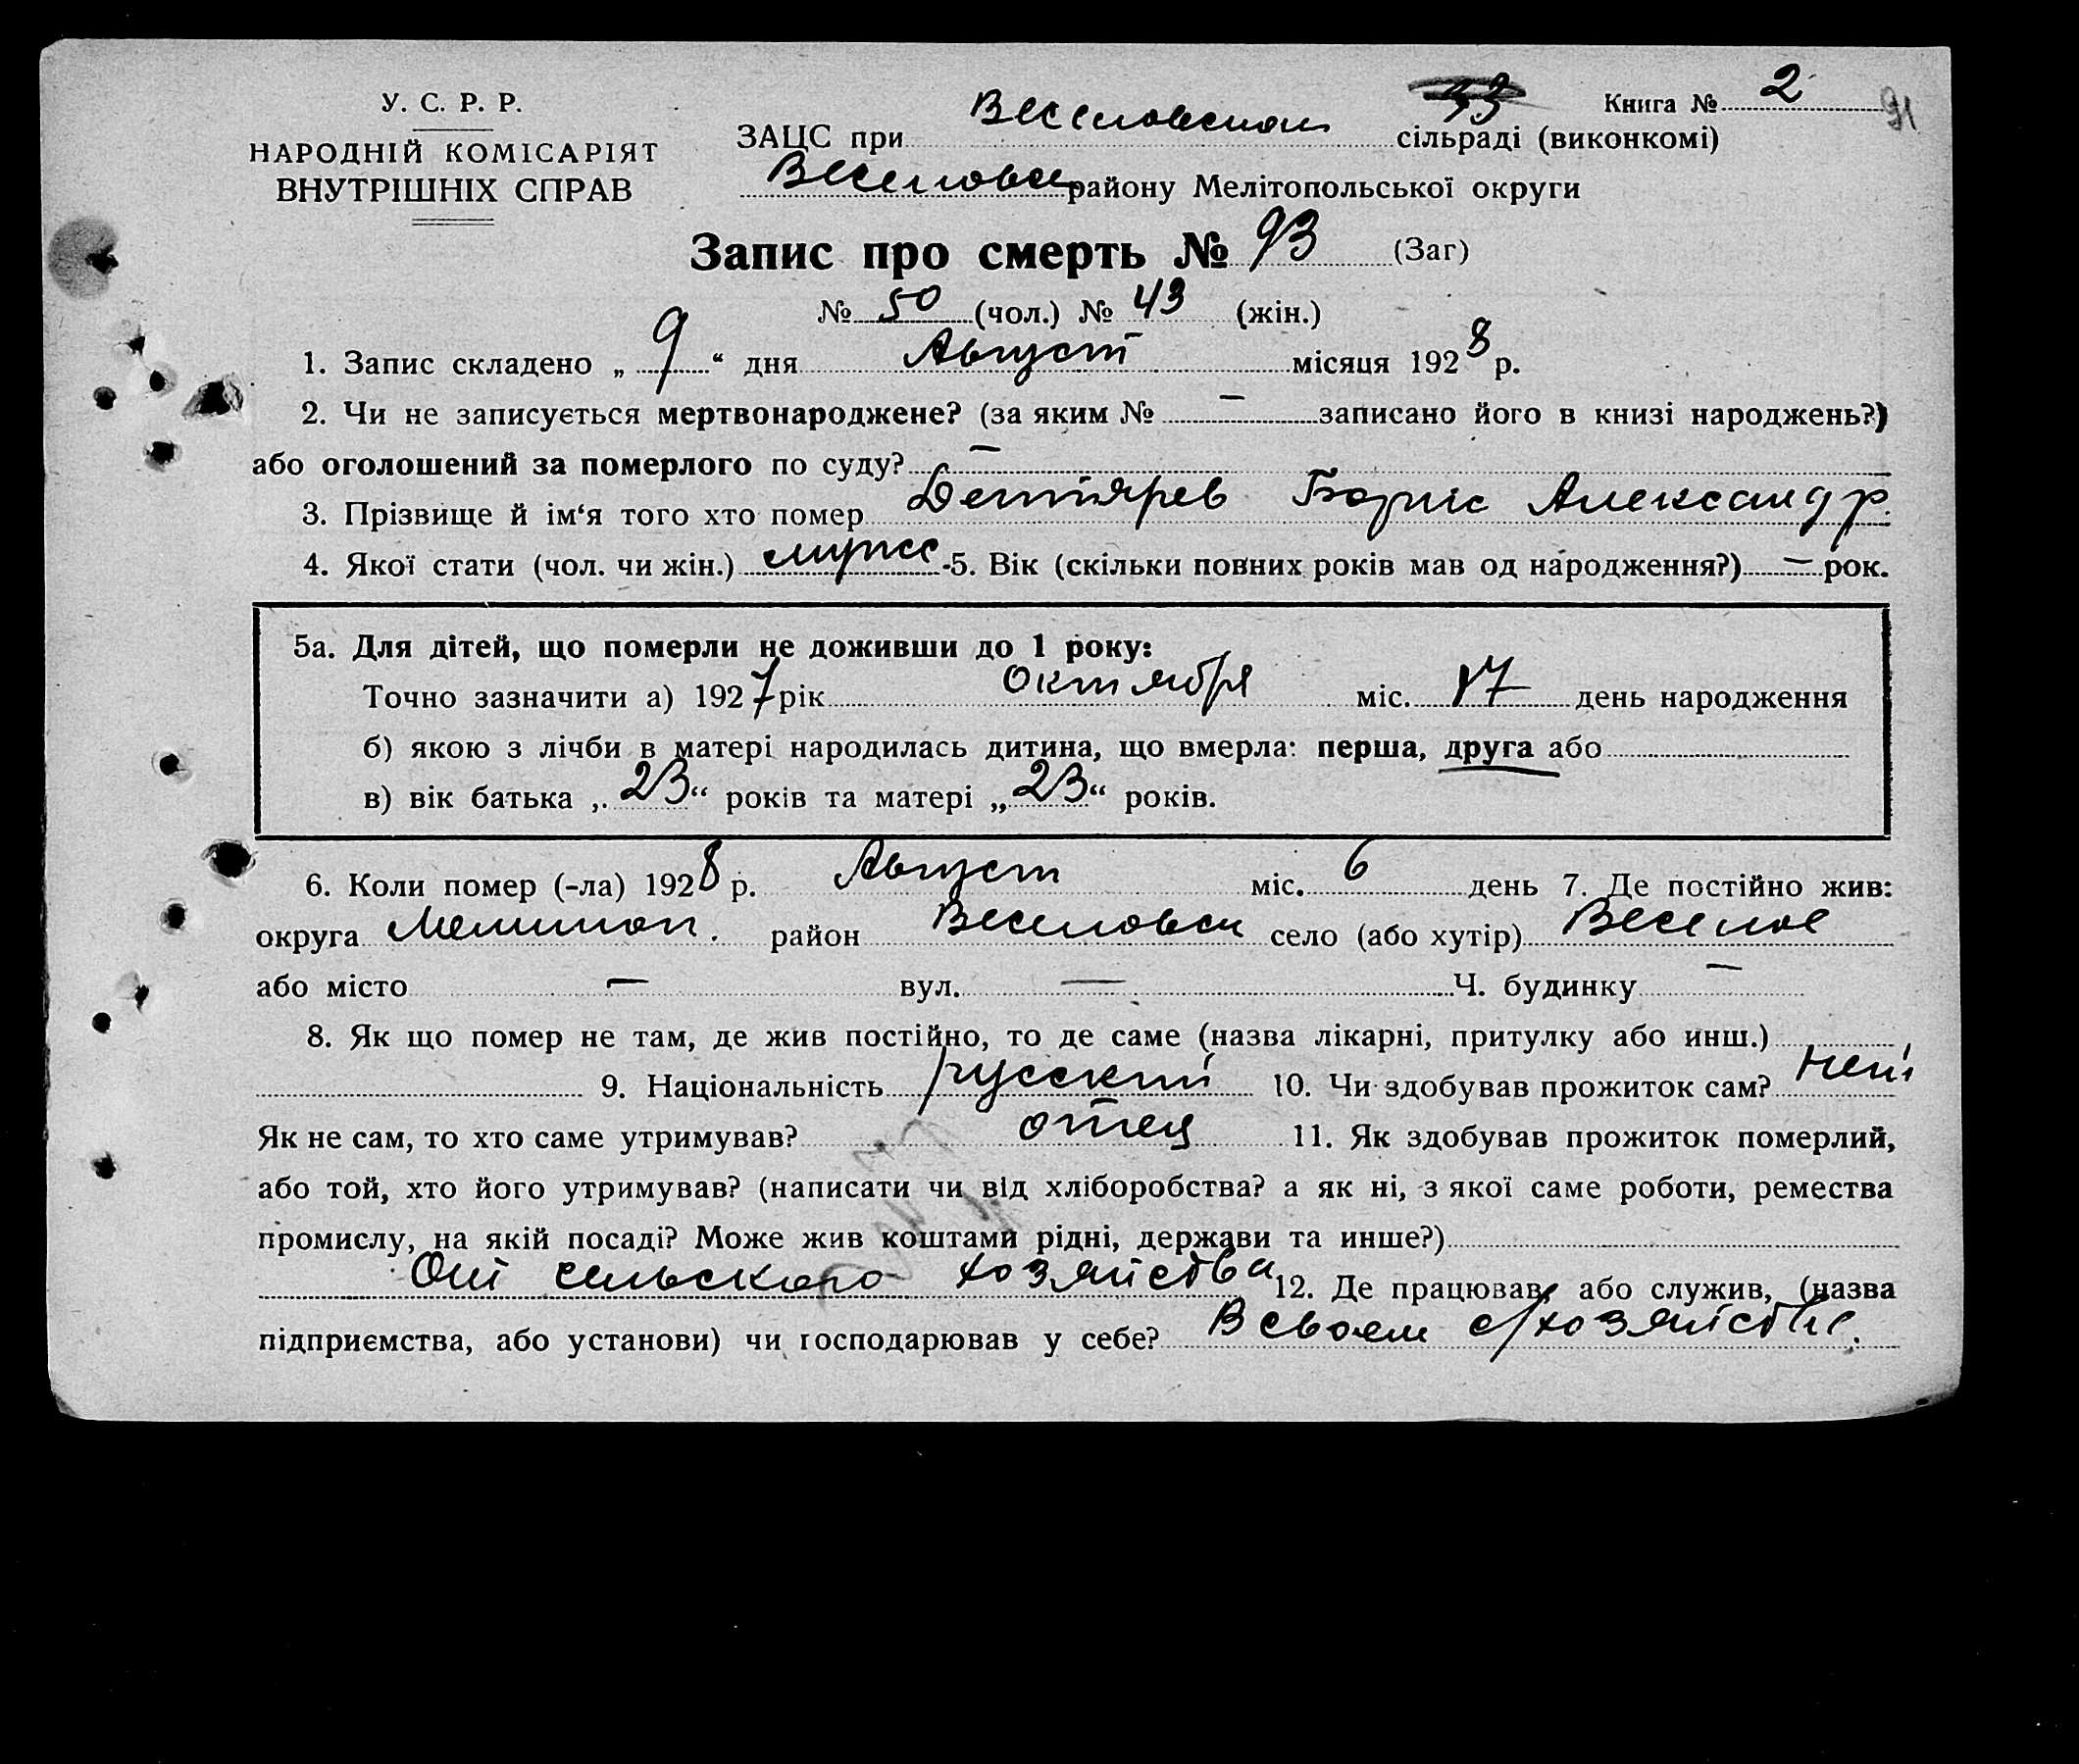 У. С. Р. Р.
НАРОДНІЙ КОМІСАРІЯТ
ВНУТРІШНІХ СПРАВ
Книга № 2
91
ЗАЦС при Веселовском сільраді (виконкомі)
Веселовск району Мелітопольської округи
Запис про смерть № 93 (Заг)
№ 50 (чол.) № 43 (жін.)
1. Запис складено „ 9 “ дня Август місяця 1928 р.
2. Чи не записується мертвонароджене? (за яким № — записано його в книзі народжень?)
або оголошений за померлого по суду? —
3. Прізвище й ім‘я того хто помер Дегтярев Борис Александр.
4. Якої стати (чол. чи жін.) мужс -5. Вік (скільки повних років мав од народження?) — рок.
5а. Для дітей, що померли не доживши до 1 року:
Точно зазначити а) 1927 рік октября міс. 17 день народження
б) якою з лічби в матері народилась дитина, що вмерла: перша, друга або
в) вік батька „ 23 “ років та матері „ 23 “ років.
6. Коли помер (-ла) 1928 р. Август міс. 6 день 7. Де постійно жив:
округа Мелитоп. район Веселовск село (або хутір) Веселое
або місто — вул. — Ч. будинку —
8. Як що помер не там, де жив постійно, то де саме (назва лікарні, притулку або инш.)
9. Національність русский 10. Чи здобував прожиток сам? нет
Як не сам, то хто саме утримував? отец 11. Як здобував прожиток померлий,
або той, хто його утримував? (написати чи від хліборобства? а як ні, з якої саме роботи, ремества
промислу, на якій посаді? Може жив коштами рідні, держави та инше?)
От сельского хозяйства 12. Де працював, або служив, (назва
підприємства, або установи) чи господарював у себе? В своем с/хозяйстве.